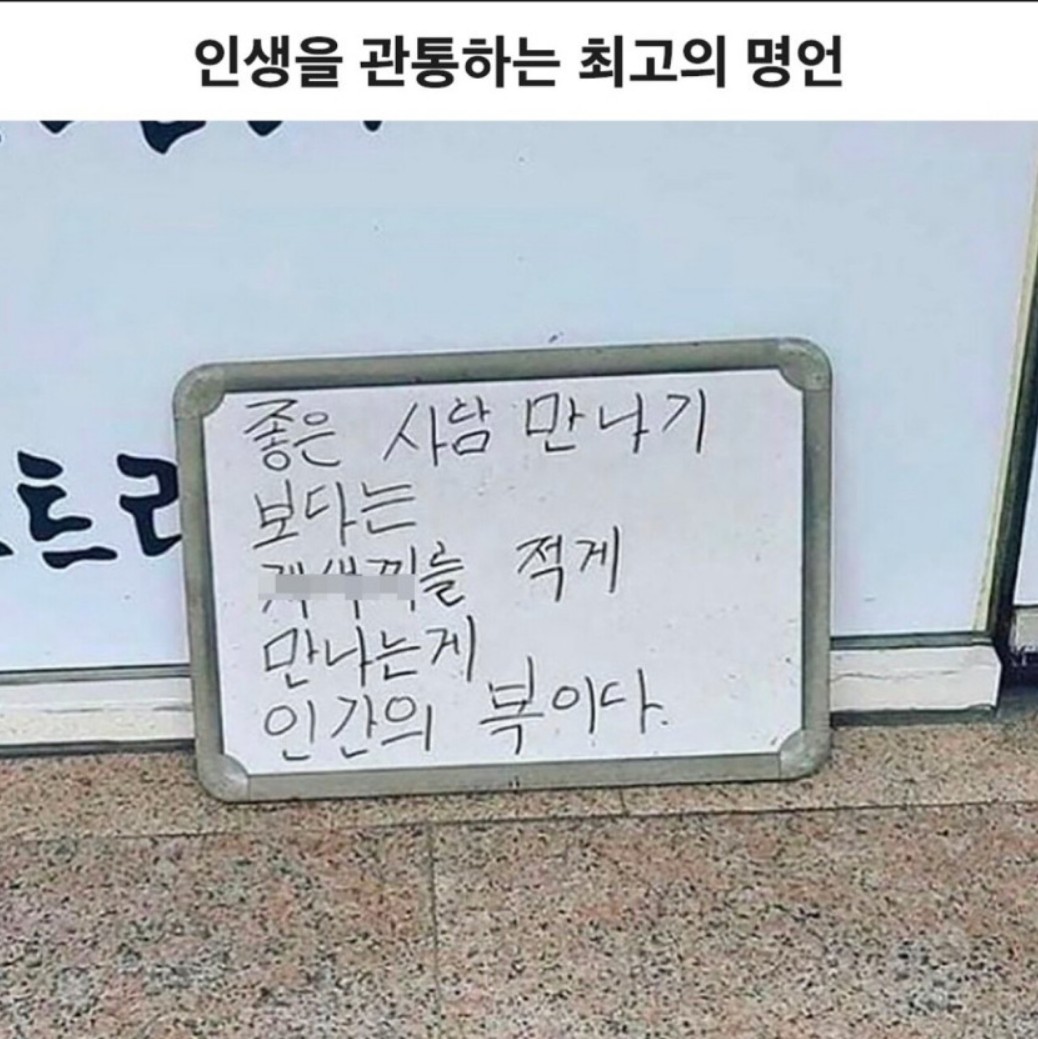 인생을 관통하는 최고의 명언
트
좋은 사람 만나기
보다는
개새끼를 적게
만나는게
인간의 복이다.